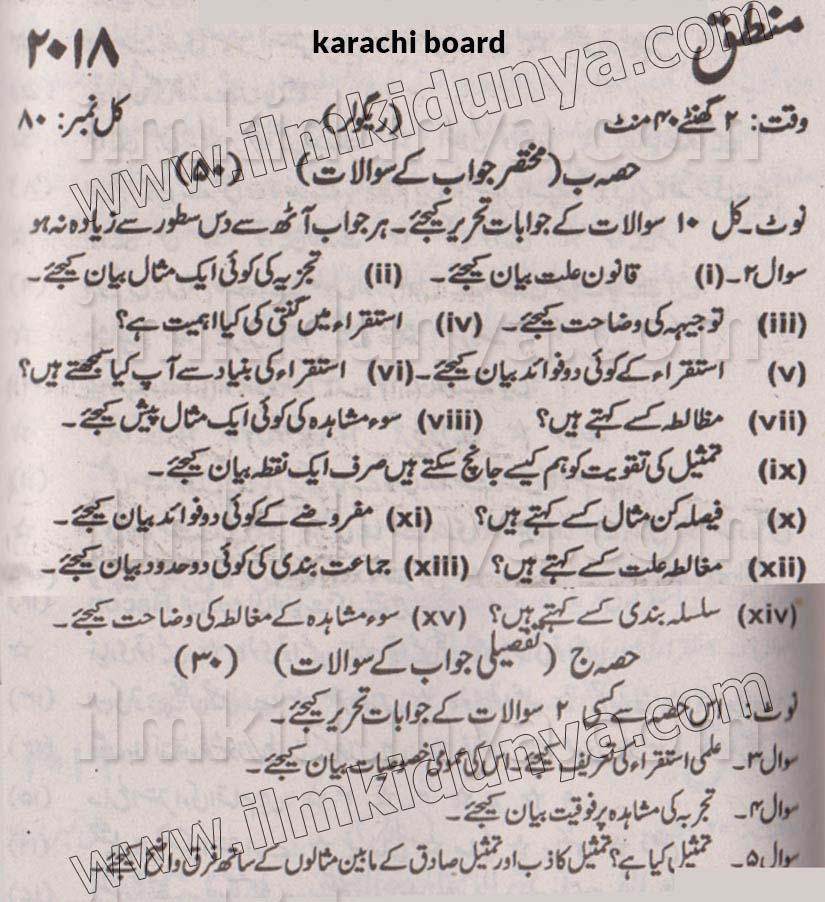 منطق karachi board ۲۰۱۸
وقت: ۲ گھنٹے ۴۰ منٹ (ریگولر) کل نمبر: ۸۰
حصہ ب (مختصر جواب کے سوالات) (۵۰)
نوٹ۔ کل ۱۰ سوالات کے جوابات تحریر کیجئے۔ ہر جواب آٹھ سے دس سطور سے زیادہ نہ ہو
سوال ۲۔ (i) قانون علت بیان کیجئے۔ (ii) تجزیہ کی کوئی ایک مثال بیان کیجئے۔
(iii) توجیہہ کی وضاحت کیجئے۔ (iv) استقراء میں گنتی کی کیا اہمیت ہے؟
(v) استقراء کے کوئی دو فوائد بیان کیجئے۔ (vi) استقراء کی بنیاد سے آپ کیا سمجھتے ہیں؟
(vii) مظالطہ کسے کہتے ہیں؟ (viii) سوء مشاہدہ کی کوئی ایک مثال پیش کیجئے۔
(ix) تمثیل کی تقویت کو ہم کیسے جانچ سکتے ہیں صرف ایک نقطہ بیان کیجئے۔
(x) فیصلہ کن مثال کسے کہتے ہیں؟ (xi) مفروضے کے کوئی دو فوائد بیان کیجئے۔
(xii) مغالطہ علت کسے کہتے ہیں؟ (xiii) جماعت بندی کی کوئی دو حدود بیان کیجئے۔
(xiv) سلسلہ بندی کسے کہتے ہیں؟ (xv) سوء مشاہدہ کے مغالطہ کی وضاحت کیجئے۔
حصہ ج (تفصیلی جواب کے سوالات) (۳۰)
نوٹ: اس حصہ سے کسی ۲ سوالات کے جوابات تحریر کیجئے۔
سوال ۳۔ علمی استقراء کی تعریف کیجئے۔ اس کی خصوصیات بیان کیجئے۔
سوال ۴۔ تجربہ کی مشاہدہ پر فوقیت بیان کیجئے۔
سوال ۵۔ تمثیل کیا ہے؟ تمثیل کاذب اور تمثیل صادق کے مابین مثالوں کے ساتھ فرق واضح کیجئے۔
www.ilmkidunya.com
www.ilmkidunya.com
ilmkidunya.com
ilmkidunya.com
ilmkidunya.com
ilmkidunya.com